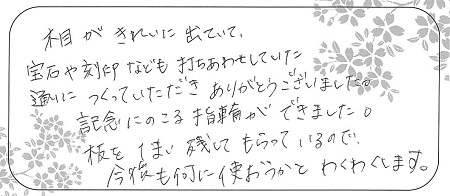 木目がきれいに出ていて、
宝石や刻印なども打ちあわせしていた
通りにつくっていただきありがとうございました。
記念にのこる指輪ができました。
板を1まい残してもらっているので、
今後も何に使おうかとわくわくします。